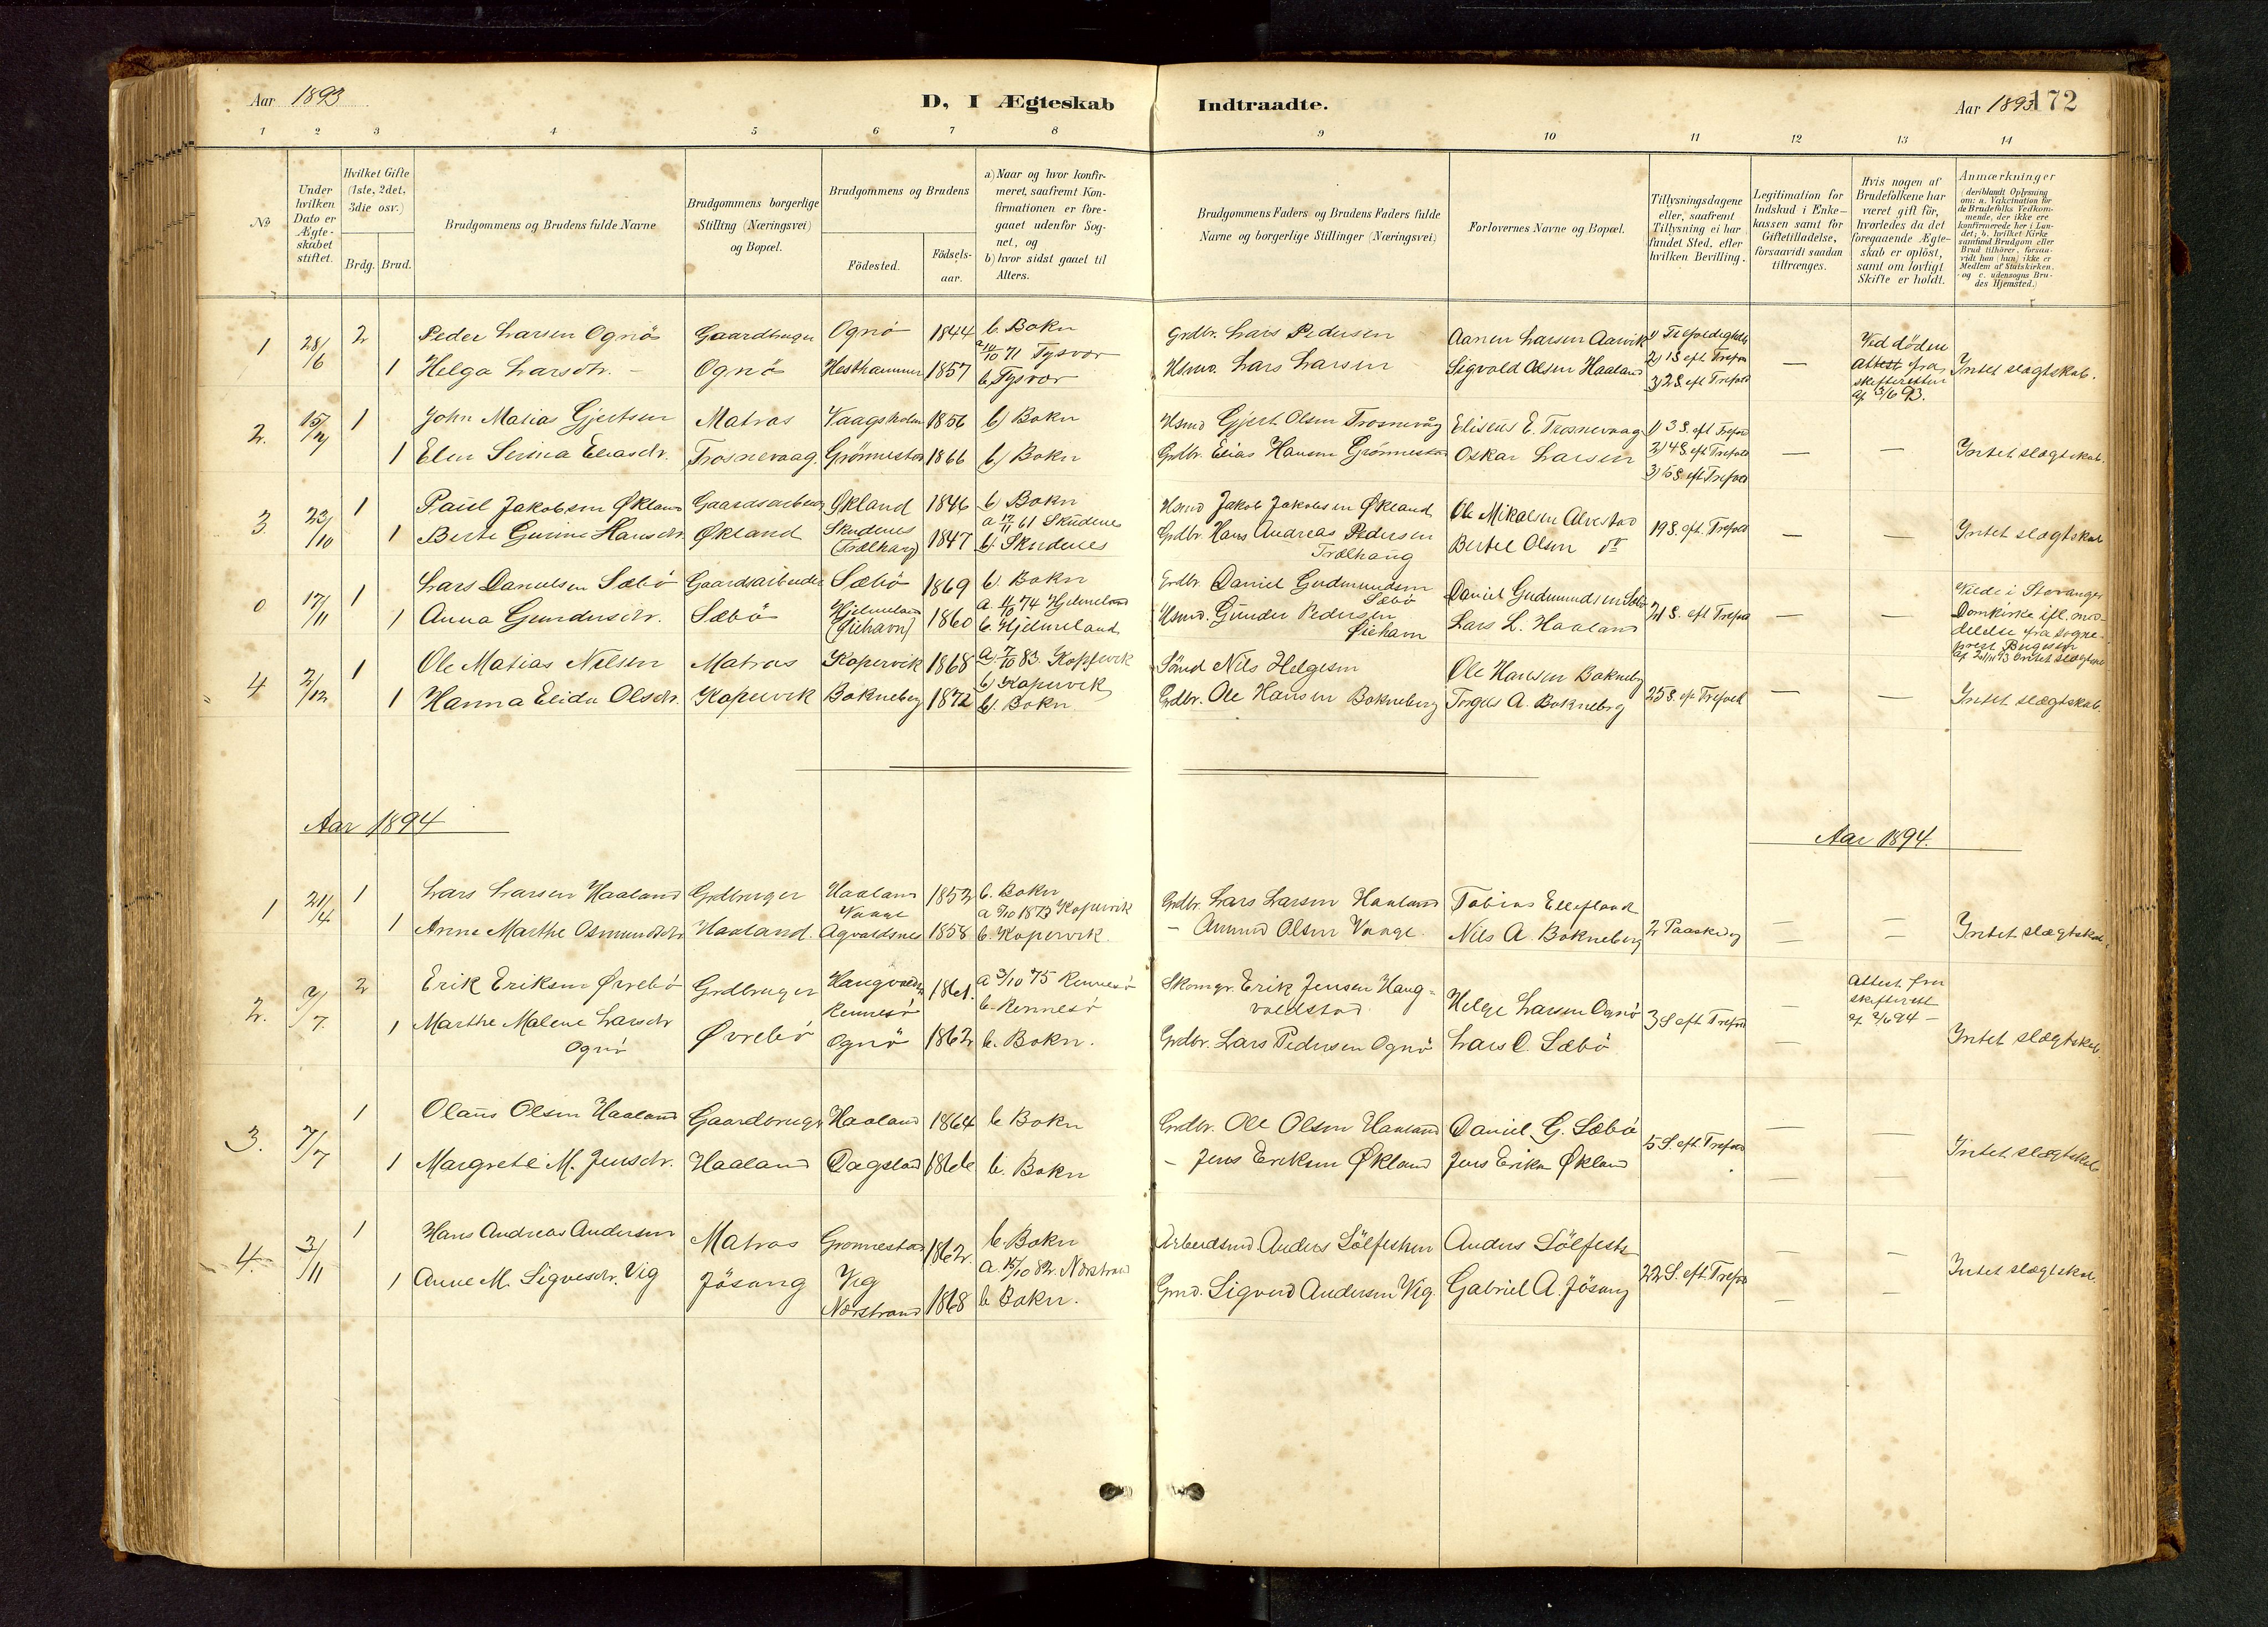 Aar 1893 D, I Ægteskab Indtraadte. Aar 1893 172
1 2 3 4 5 6 7 8 9 10 11 12 13 14
№
Under hvilken Dato er Ægte-skabet stiftet.
Hvilket Gifte (1ste, 2det, 3die osv.)
Brdg. Brud.
Brudgommens og Brudens fulde Navne
Brudgommens borgerlige Stilling (Næringsvei) og Bopæl.
Brudgommens og Brudens
Födested. Födsels-aar.
a) Naar og hvor konfir-meret, saafremt Kon-firmationen er fore-gaaet udenfor Sog-net, og
b) hvor sidst gaaet til Alters.
Brudgommens Faders og Brudens Faders fulde Navne og borgerlige Stillinger (Næringsvei)
Forlovernes Navne og Bopæl.
Tillysningsdagene eller, saafremt Tillysning ei har fundet Sted, efter hvilken Bevilling.
Legitimation for Indskud i Enke-kassen samt for Giftetilladelse, forsaavidt saadan tiltrænges.
Hvis nogen af Brudefolkene har været gift för, hvorledes da det foregaaende Ægte-skab er oplöst, samt om lovligt Skifte er holdt.
Anmærkninger
(deriblandt Oplysning om: a. Vakcination for de Brudefolks Vedkom-mende, der ikke ere konfirmerede her i Lan-det; b. hvilket Kirke samfund Brudgom eller Brud tilhörer, forsaa-vidt han (hun) ikke er Medlem af Statskirken, og c. udensogns Bru-des Hjemsted.)
1 28/6 2 Peder Larsen Ognö Gaardbruger Ognö 1844 b. Bokn Grdbr. Lars Pedersen Aanen Larsen Aarvik 1) Trefoldighds Ved döden
1 Helga Larsdtr. - Ognö Hesthammer 1857 a 71 Tysvor b. Tysvor Hsmd. Lars Larsen Sigvald Olsen Haaland 2) 1 S. eft. Trefo 3) 2 S. eft Trefold — Attest fra skifteretten af 3/6 93. Intet slægtskab.
2. 15/7 1 John Matias Gjertsen Matros Vaagsholm 1856 b) Bokn Hsmd Gjert Olsen Trosnevåg Eliseus E. Trosnevaag 1) 3 S. eft Trefold
1 Elen Serina Eliasdr. Trosnevaag. Grönnestad 1866 b) Bokn Grdbr. Elias Hansen Grönnestad Oskar Larsen 2) 4 S. eft Trefold 3) 5 S. eft Trefold — — Intet slægtskab.
3. 23/10 1 Paul Jakobsen Økland Gaardsarbeider Økland 1846 b) Bokn Hsmd Jakob Jakobsen Økland Ole Mikalsen Alvestad
1 Berte Gurine Hansdr Økland Skudenes (Trælhaug) 1847 a 61 Skudenes b). Skudenes Grdbr. Hans Andreas Pedersen Trælhaug Bertel Olsen do 19 S. eft. Trefold — — Intet slægtskab
0 17/11 1 Lars Danielsen Sæbö Gaardsarbeider Sæbö 1869 b. Bokn Grdbr. Daniel Gudmundsen Sæbö Daniel Gudmundsen Sæbö
1 Anna Gundersdr. Sæbö Hjelmeland 1860 a. 74 Hjelmeland b. Hjelmeland Hsmd. Gunder Pedersen Lars L. Haaland 21 S. eft Trefold — — Viede i Stavanger Domkirke ifl. med-delelse fra sogne-prest Intet slægtskab
4 2/12 1 Ole Matias Nilsen Matros Kopervik 1868 a. 7/10 83. Kopervik b) Kopervik Nils Helgesen Ole Hansen Bokneberg
1 Hanna Elida Olsdr. Kopervik Bokneberg 1872 b). Bokn Grdbr. Ole Hansen Bokneberg Torgus A. Bokneberg 25 S. ef. Trefold — — Intet slægtskab.
Aar 1894 Aar 1894.
1 21/4 1 Lars Larsen Haaland Grdbruger Haaland 1853 b. Bokn Grdbr. Lars Larsen Haaland Tobias Ellefland
1 Anne Marthe Osmundsdr Haaland. Vaage Agvaldsnes 1858 a 1873 Kopervik b. Kopervik. - Aumund Olsen Vaage. Nils A. Bokneberg 2 Paaskedag — — Intet slægtskab.
2. 7/7. 2 Erik Eriksen Øvrebö Grdbruger Haugvaldstad Rennesö 1861. a 3/10 75 Rennesö b. Rennesö Skomgr. Erik Jensen Haug-valdstad Helge Larsen Ognö — Attest fra skifterett af 2/6 94 -
1 Marthe Malene Larsdr Ognö Øvrebö Ognö 1862 b. Bokn. Grdbr. Lars Pedersen Ognö Lars O. Sæbö 3 S eft Trefold — Intet slægtskab.
3. 7/7 1 Olaus Olsen Haaland Gaardbruger Haaland 1864 b Bokn Grdbr. Ole Olsen Haaland Daniel G. Sæbö — —
1 Margrete M. Jensdr. Haaland Dagslad 1866 b. Bokn - Jens Eriksen Økland Jens Eriksn Økland 5 S. eft. Trefold — — Intet slægtskab
4. 3/11 1 Hans Andreas Andersen Matros Grönnestad 1862. b. Bokn Arbeidsmd Anders Sölfestsen Anders Sölfests — —
1 Anne M. Sigvesdr. Vig Jösang Vig Nærstrand 1868 a. 15/10 82. Nærstrand b Bokn. Gmd. Sigvard Andersen Vig. Gabriel A. Jösang 22 S. eft. Trefold — — Intet slægtskab.